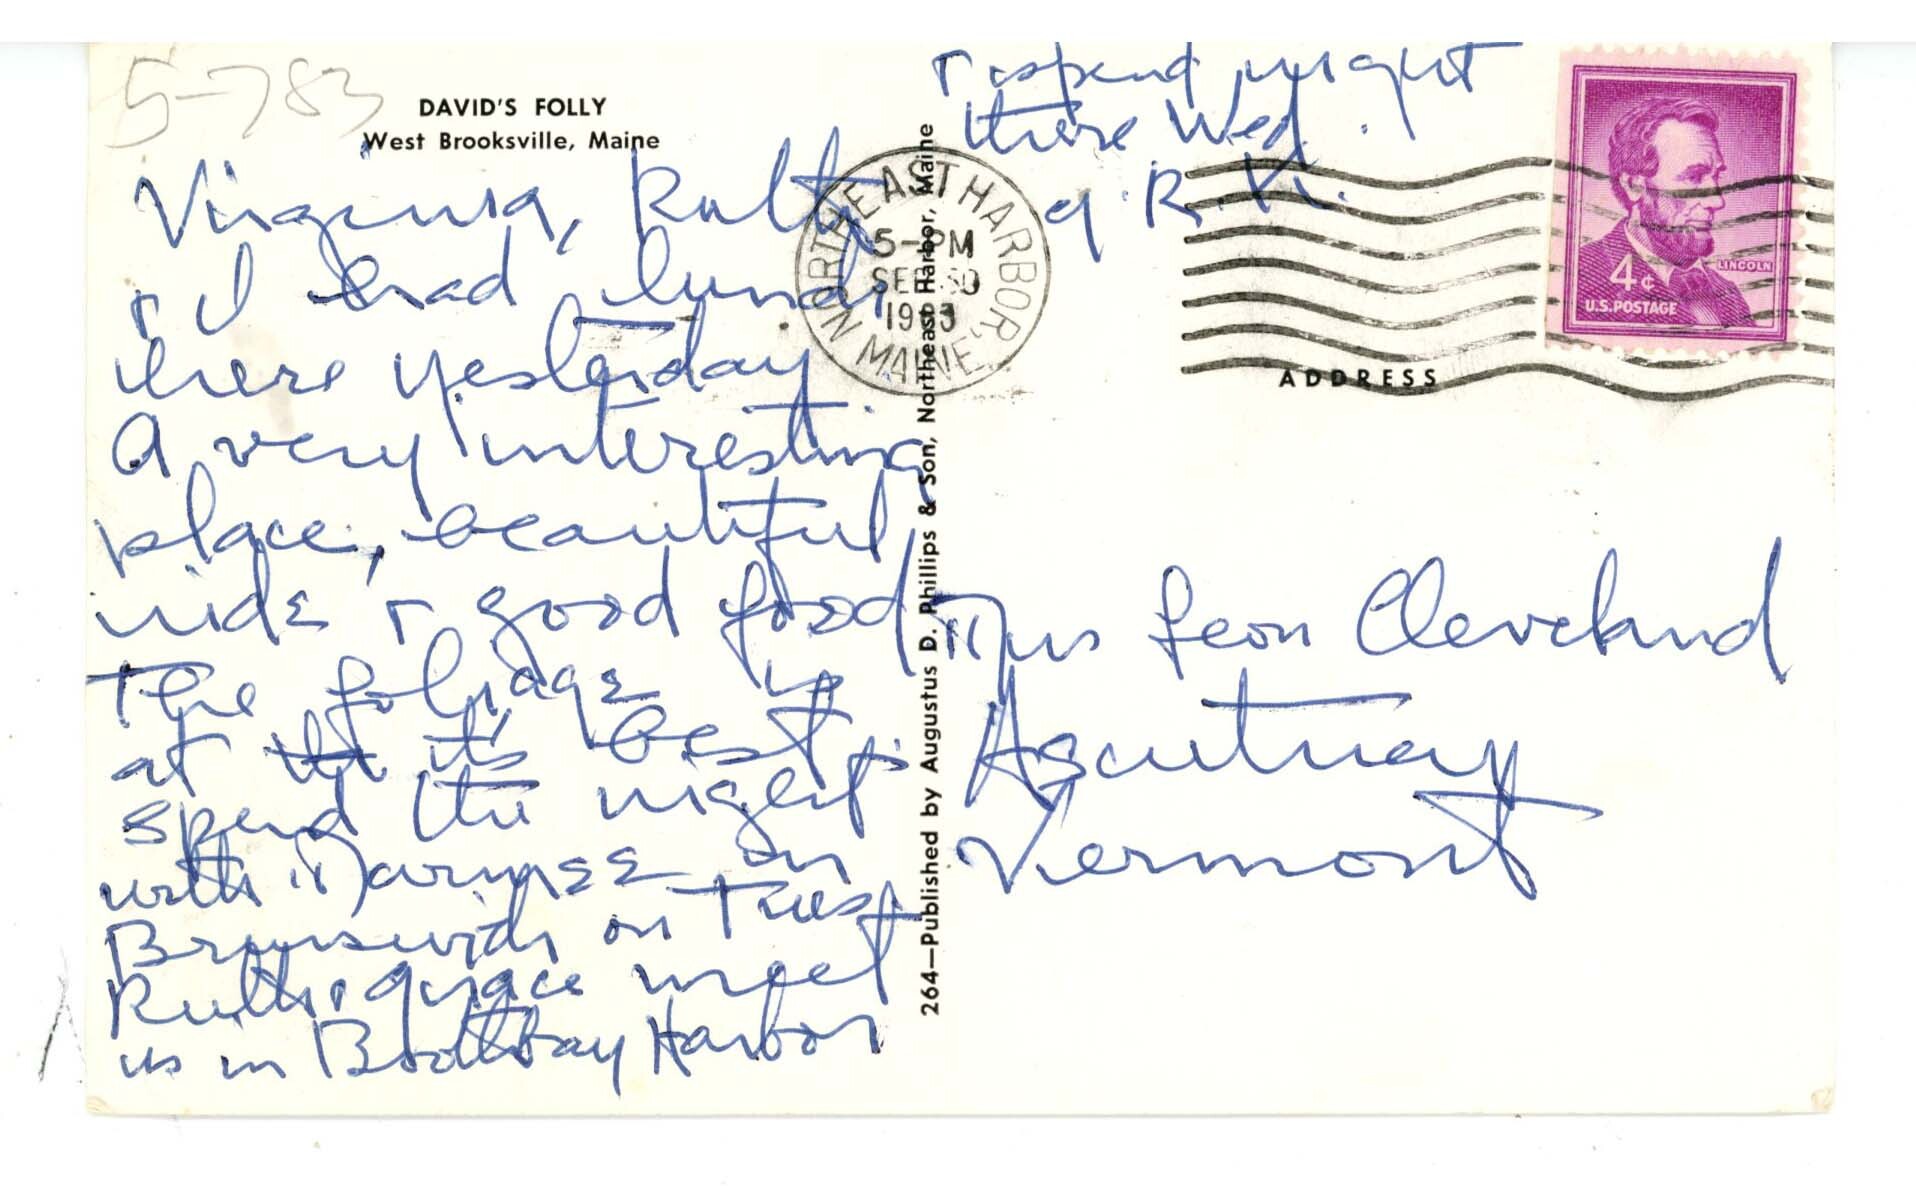 5-783
DAVID'S FOLLY
West Brooksville, Maine
Virginia, Ruth
& I had lunch
here yesterday
A very interesting
place, beautiful
ride & good food
The foliage is
at its best.
spend the night
with in
Brunswick on Tues
Ruth & Grace meet
us in Boothbay Harbor
& spend night
there Wed.
R. K.
NORTHEAST HARBOR
5-PM
SEP 30
MAINE
264—Published by Augustus D. Phillips & Son, Northeast Harbor, Maine
LINCOLN
4¢
U.S. POSTAGE
ADDRESS
Mrs Leon Cleveland
Ascutney
Vermont